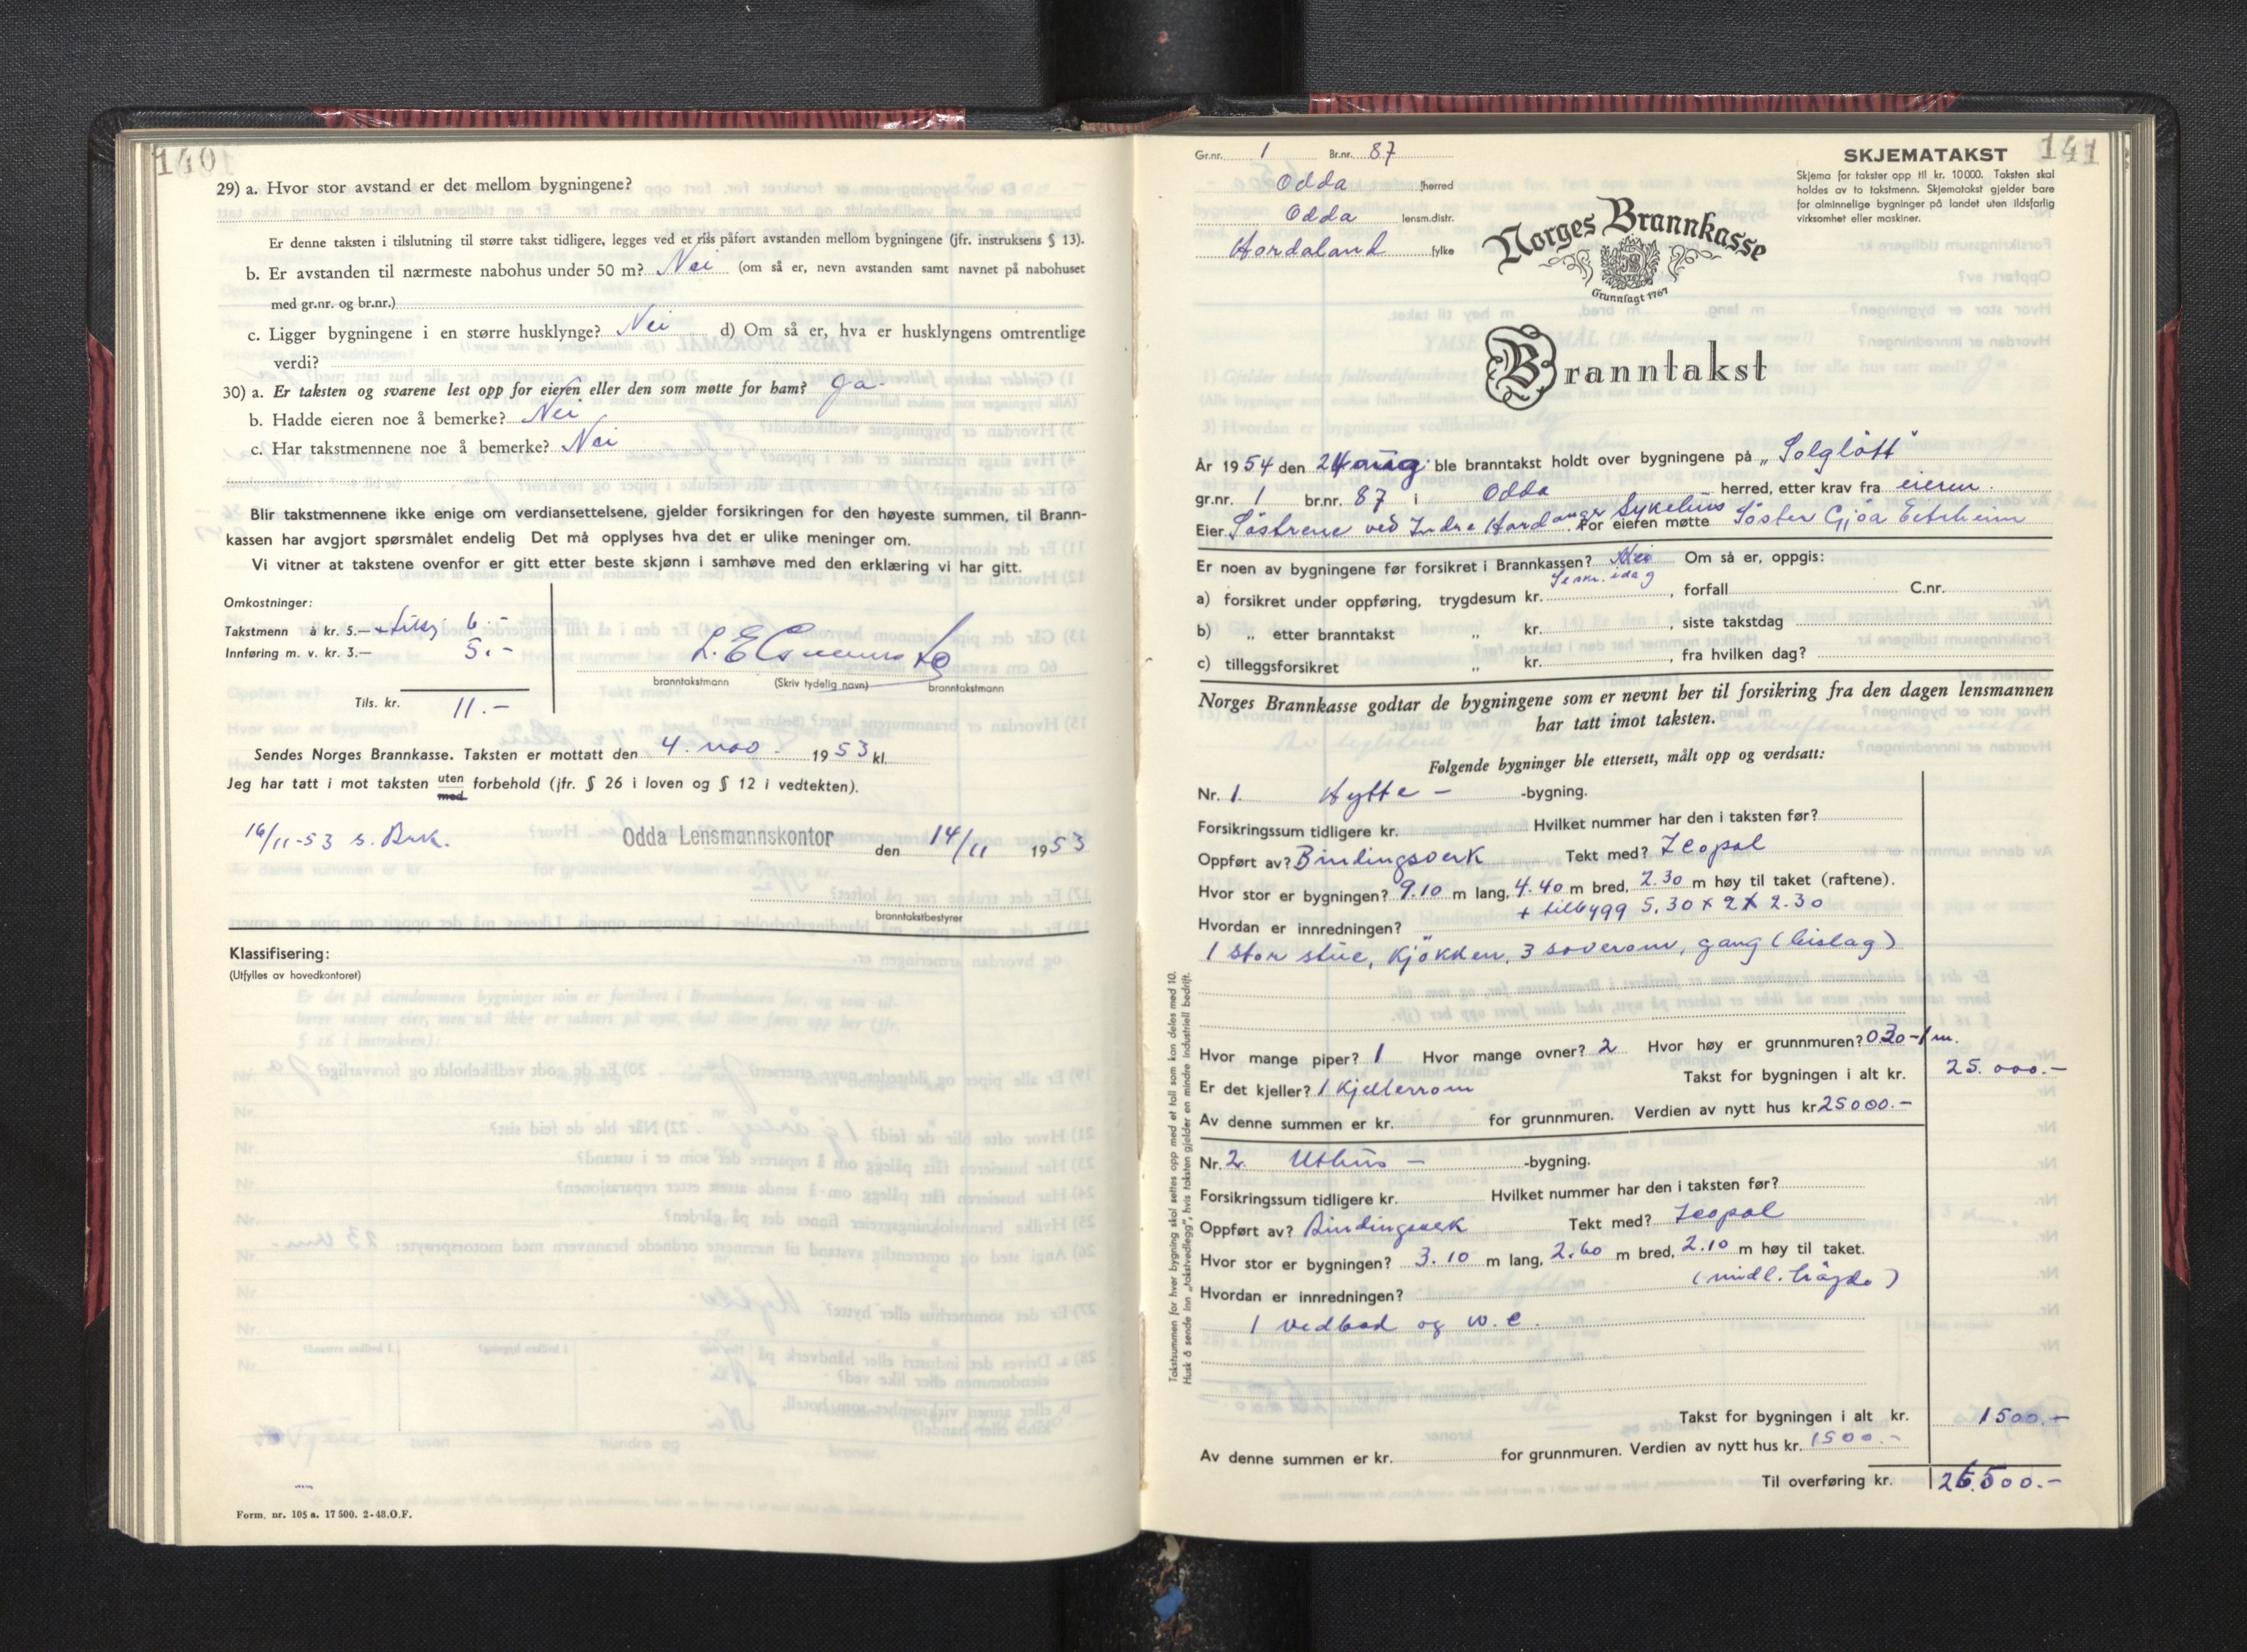 140
29) a. Hvor stor avstand er det mellom bygningene?
Er denne taksten i tilslutning til større takst tidligere, legges ved et riss påført avstanden mellom bygningene (jfr. instruksens § 13).
b. Er avstanden til nærmeste nabohus under 50 m? Nei (om så er, nevn avstanden samt navnet på nabohuset
med gr.nr. og br.nr.)
c. Ligger bygningene i en større husklynge? Nei d) Om så er, hva er husklyngens omtrentlige
verdi?
30) a. Er taksten og svarene lest opp for eieren eller den som møtte for ham? Ja
b. Hadde eieren noe å bemerke? Nei
c. Har takstmennene noe å bemerke? Nei
Blir takstmennene ikke enige om verdiansettelsene, gjelder forsikringen for den høyeste summen, til Brann-
kassen har avgjort spørsmålet endelig Det må opplyses hva det er ulike meninger om.
Vi vitner at takstene ovenfor er gitt etter beste skjønn i samhøve med den erklæring vi har gitt.
Omkostninger:
Takstmenn à kr. 5.— 6.-
Innføring m. v. kr. 3.— 5.-
branntakstmann (Skriv tydelig navn) branntakstmann
Tils. kr. 11.-
Sendes Norges Brannkasse. Taksten er mottatt den 4. nov. 1953 kl.
Jeg har tatt i mot taksten uten med forbehold (jfr. § 26 i loven og § 12 i vedtekten).
16/11-53 s. Brk.
Odda Lensmannskontor den 14/11 1953
branntakstbestyrer
Klassifisering:
(Utfylles av hovedkontoret)
Form. nr. 105 a. 17 500. 2-48.O.F.
Gr.nr. 1 Br.nr. 87
SKJEMATAKST 141
Skjema for takster opp til kr. 10000. Taksten skal
holdes av to takstmenn. Skjematakst gjelder bare
for alminnelige bygninger på landet uten ildsfarlig
virksomhet eller maskiner.
Odda herred
Odda lensm.distr.
Hordaland fylke
Norges Brannkasse
Grunnlagt 1767
Branntakst
År 1954 den 24 aug. ble branntakst holdt over bygningene på „Solglött"
gr.nr. 1 br.nr. 87 i Odda herred, etter krav fra eieren.
Eier Söstrene ved Indre Hardanger Sykehus For eieren møtte Söster Gjöa Eitrheim
Er noen av bygningene før forsikret i Brannkassen? Nei Om så er, oppgis:
a) forsikret under oppføring, trygdesum kr. , forfall C.nr.
b) „ etter branntakst „ kr. , siste takstdag
c) tilleggsforsikret „ kr. , fra hvilken dag?
Norges Brannkasse godtar de bygningene som er nevnt her til forsikring fra den dagen lensmannen
har tatt imot taksten.
Følgende bygninger ble ettersett, målt opp og verdsatt:
Nr. 1. Hytte - -bygning.
Forsikringssum tidligere kr. Hvilket nummer har den i taksten før?
Oppført av? Bindingsverk Tekt med? Icopal
Hvor stor er bygningen? 9.10 m lang, 4.40 m bred, 2.30 m høy til taket (raftene).
+ tilbygg 5.30 x 2 x 2.30
Hvordan er innredningen?
1 stor stue, kjökken, 3 soverom, gang (bislag)
Hvor mange piper? 1 Hvor mange ovner? 2 Hvor høy er grunnmuren? 0.30-1 m.
Er det kjeller? 1 kjellerrom Takst for bygningen i alt kr. 25.000.-
Av denne summen er kr. for grunnmuren. Verdien av nytt hus kr 25000.-
Nr. 2. Uthus - -bygning.
Forsikringssum tidligere kr. Hvilket nummer har den i taksten før?
Oppført av? Bindingsverk Tekt med? Icopal
Hvor stor er bygningen? 3.10 m lang, 2.60 m bred, 2.10 m høy til taket.
(midl. högde)
Hvordan er innredningen?
1 vedbod og w.c.
Takst for bygningen i alt kr. 1500.-
Av denne summen er kr. for grunnmuren. Verdien av nytt hus kr. 1500.-
Til overføring kr. 26.500.-
Takstsummen for hver bygning skal settes opp med et tall som kan deles med 10.
Husk å sende inn „takstvedlegg", hvis taksten gjelder en mindre industriell bedrift.